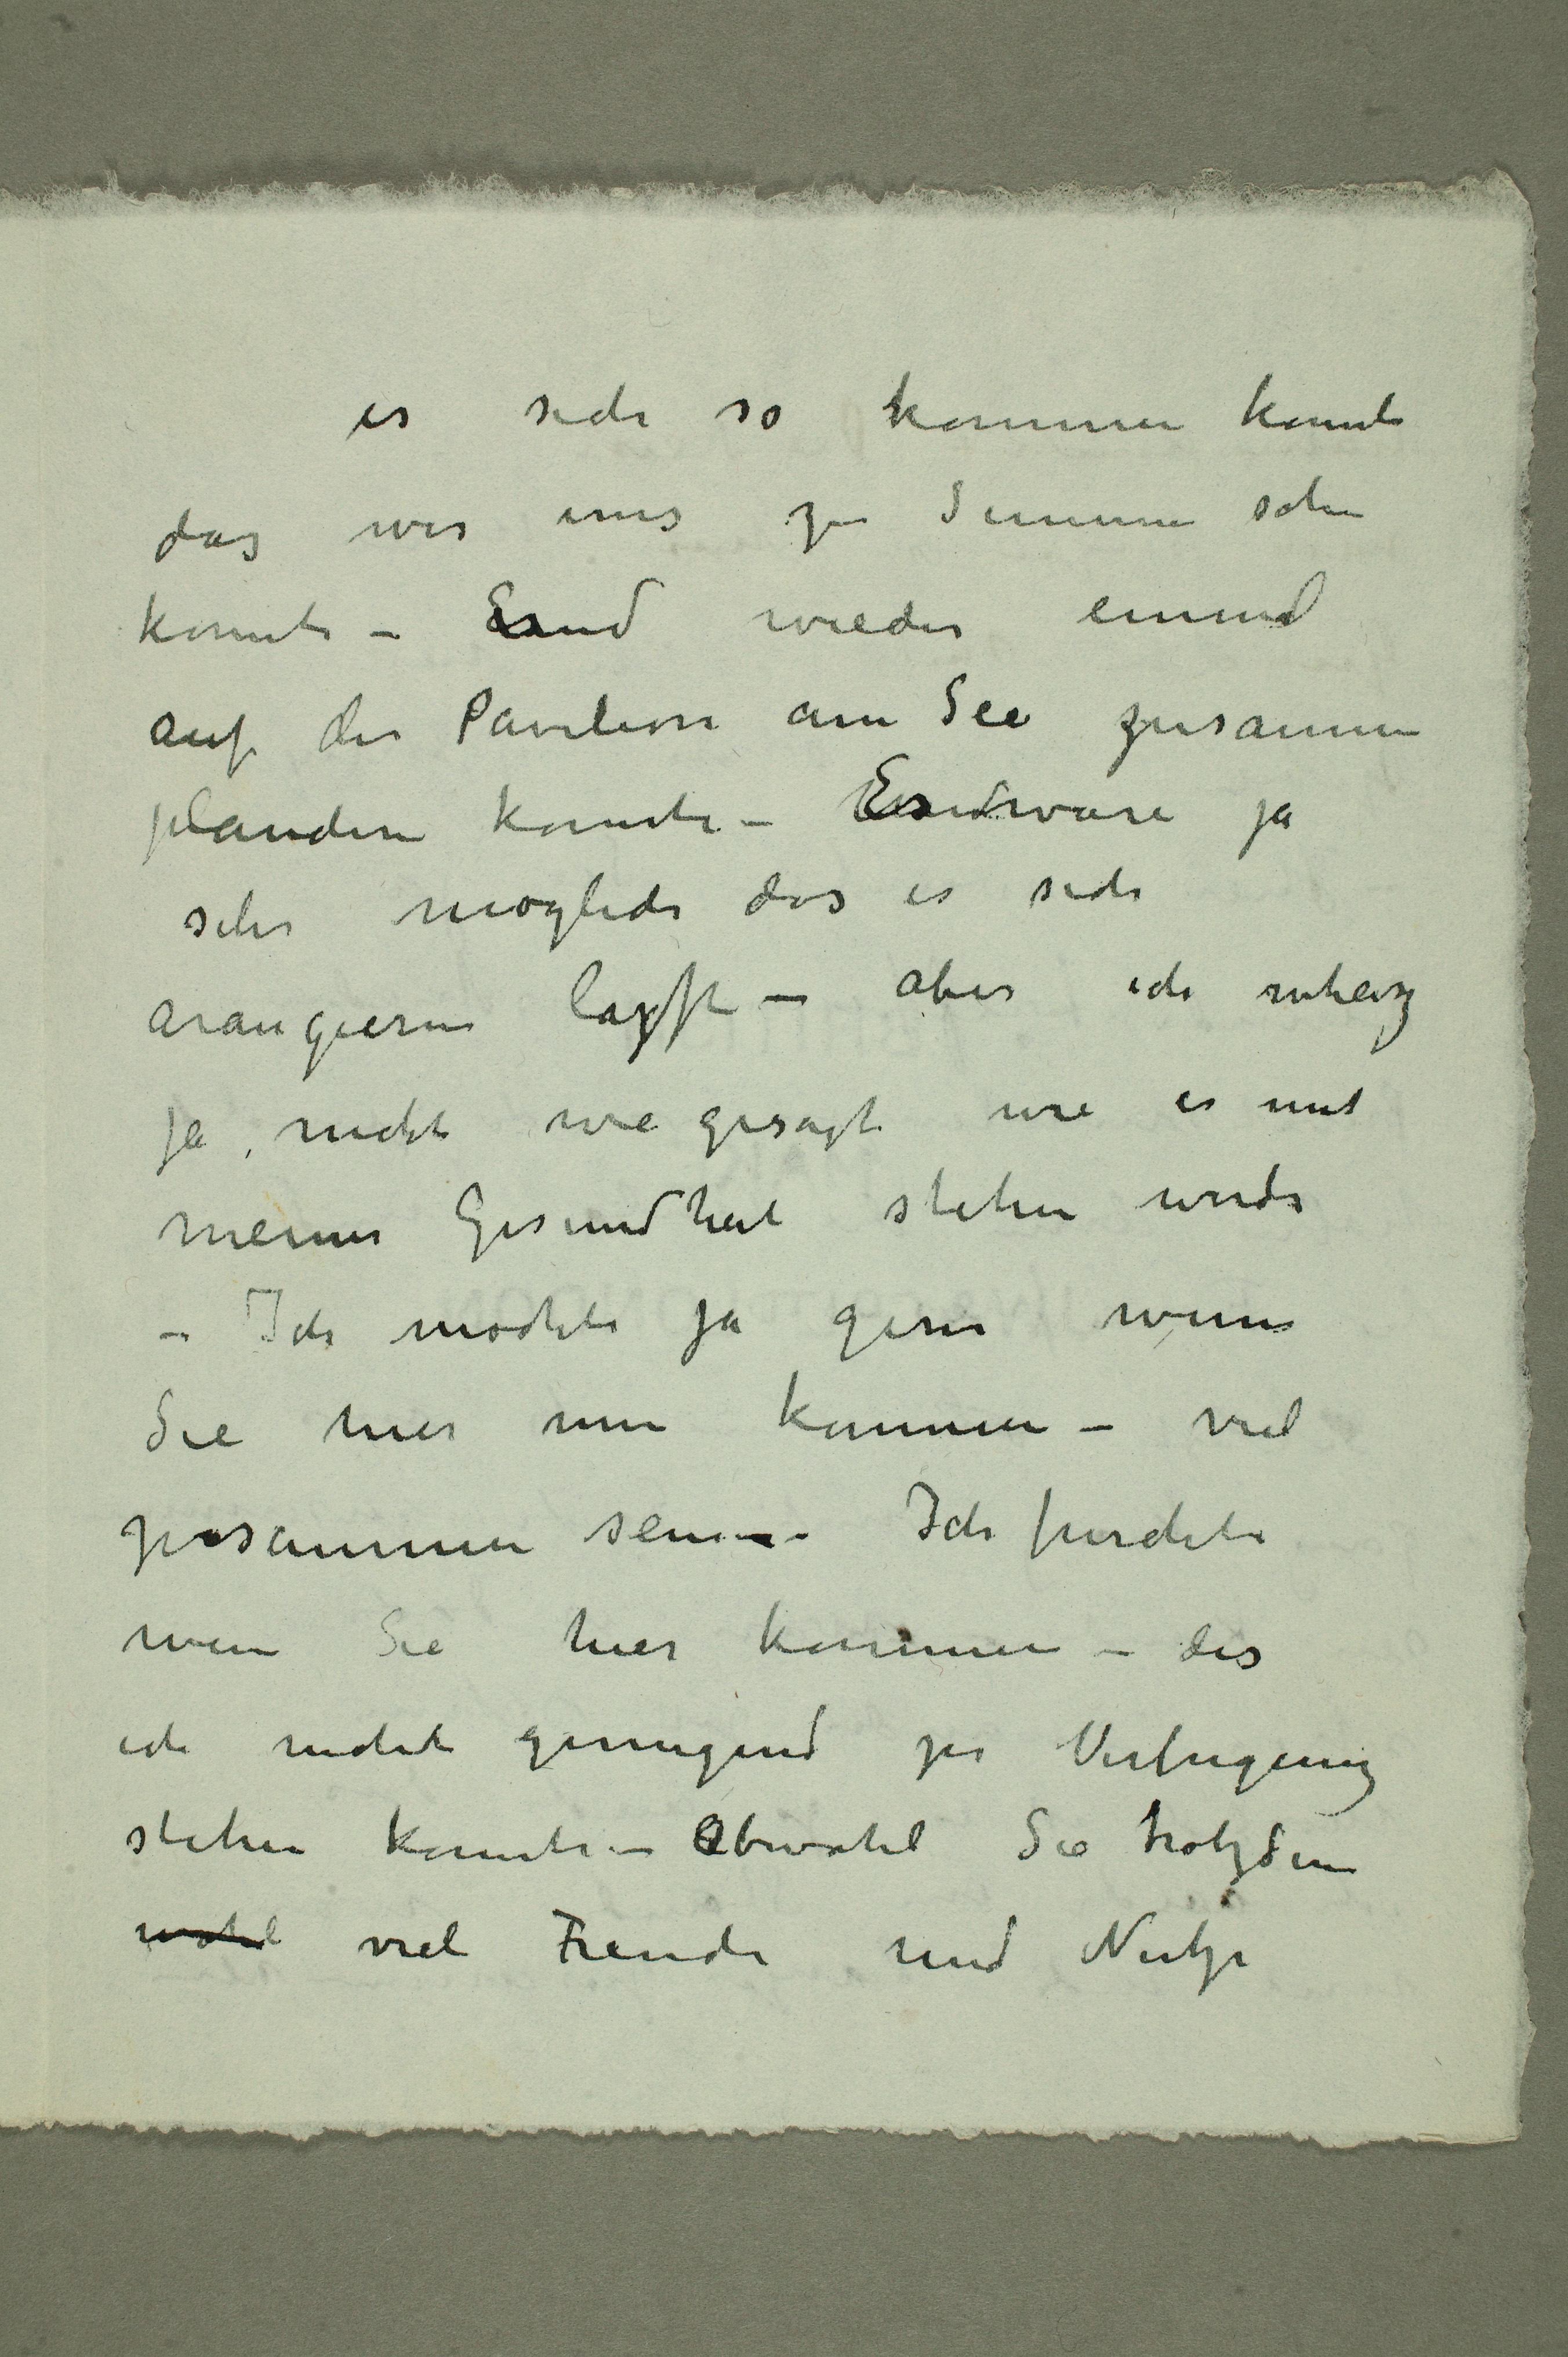 es sich so kommen konnte
das wir uns zu Sommer sehen
konnte – und wieder einmal
auf der Pavilion am See zusammen
plaudern konnte – Es wäre ja
sehr möglich das es sich
arangieren läßt – aber ich weiß
ja, nicht wie gesagt wie es mit
meiner Gesundheit stehen wird
– Ich möchte ja gern wenn
Sie hier nun kommen – viel
zusammen sein – Ich furchte
wenn Sie hier kommen – das
ich nicht genugend zur Verfugung
stehen konnte – Obwohl Sie trotzdem
wohl viel Freude und Nutze